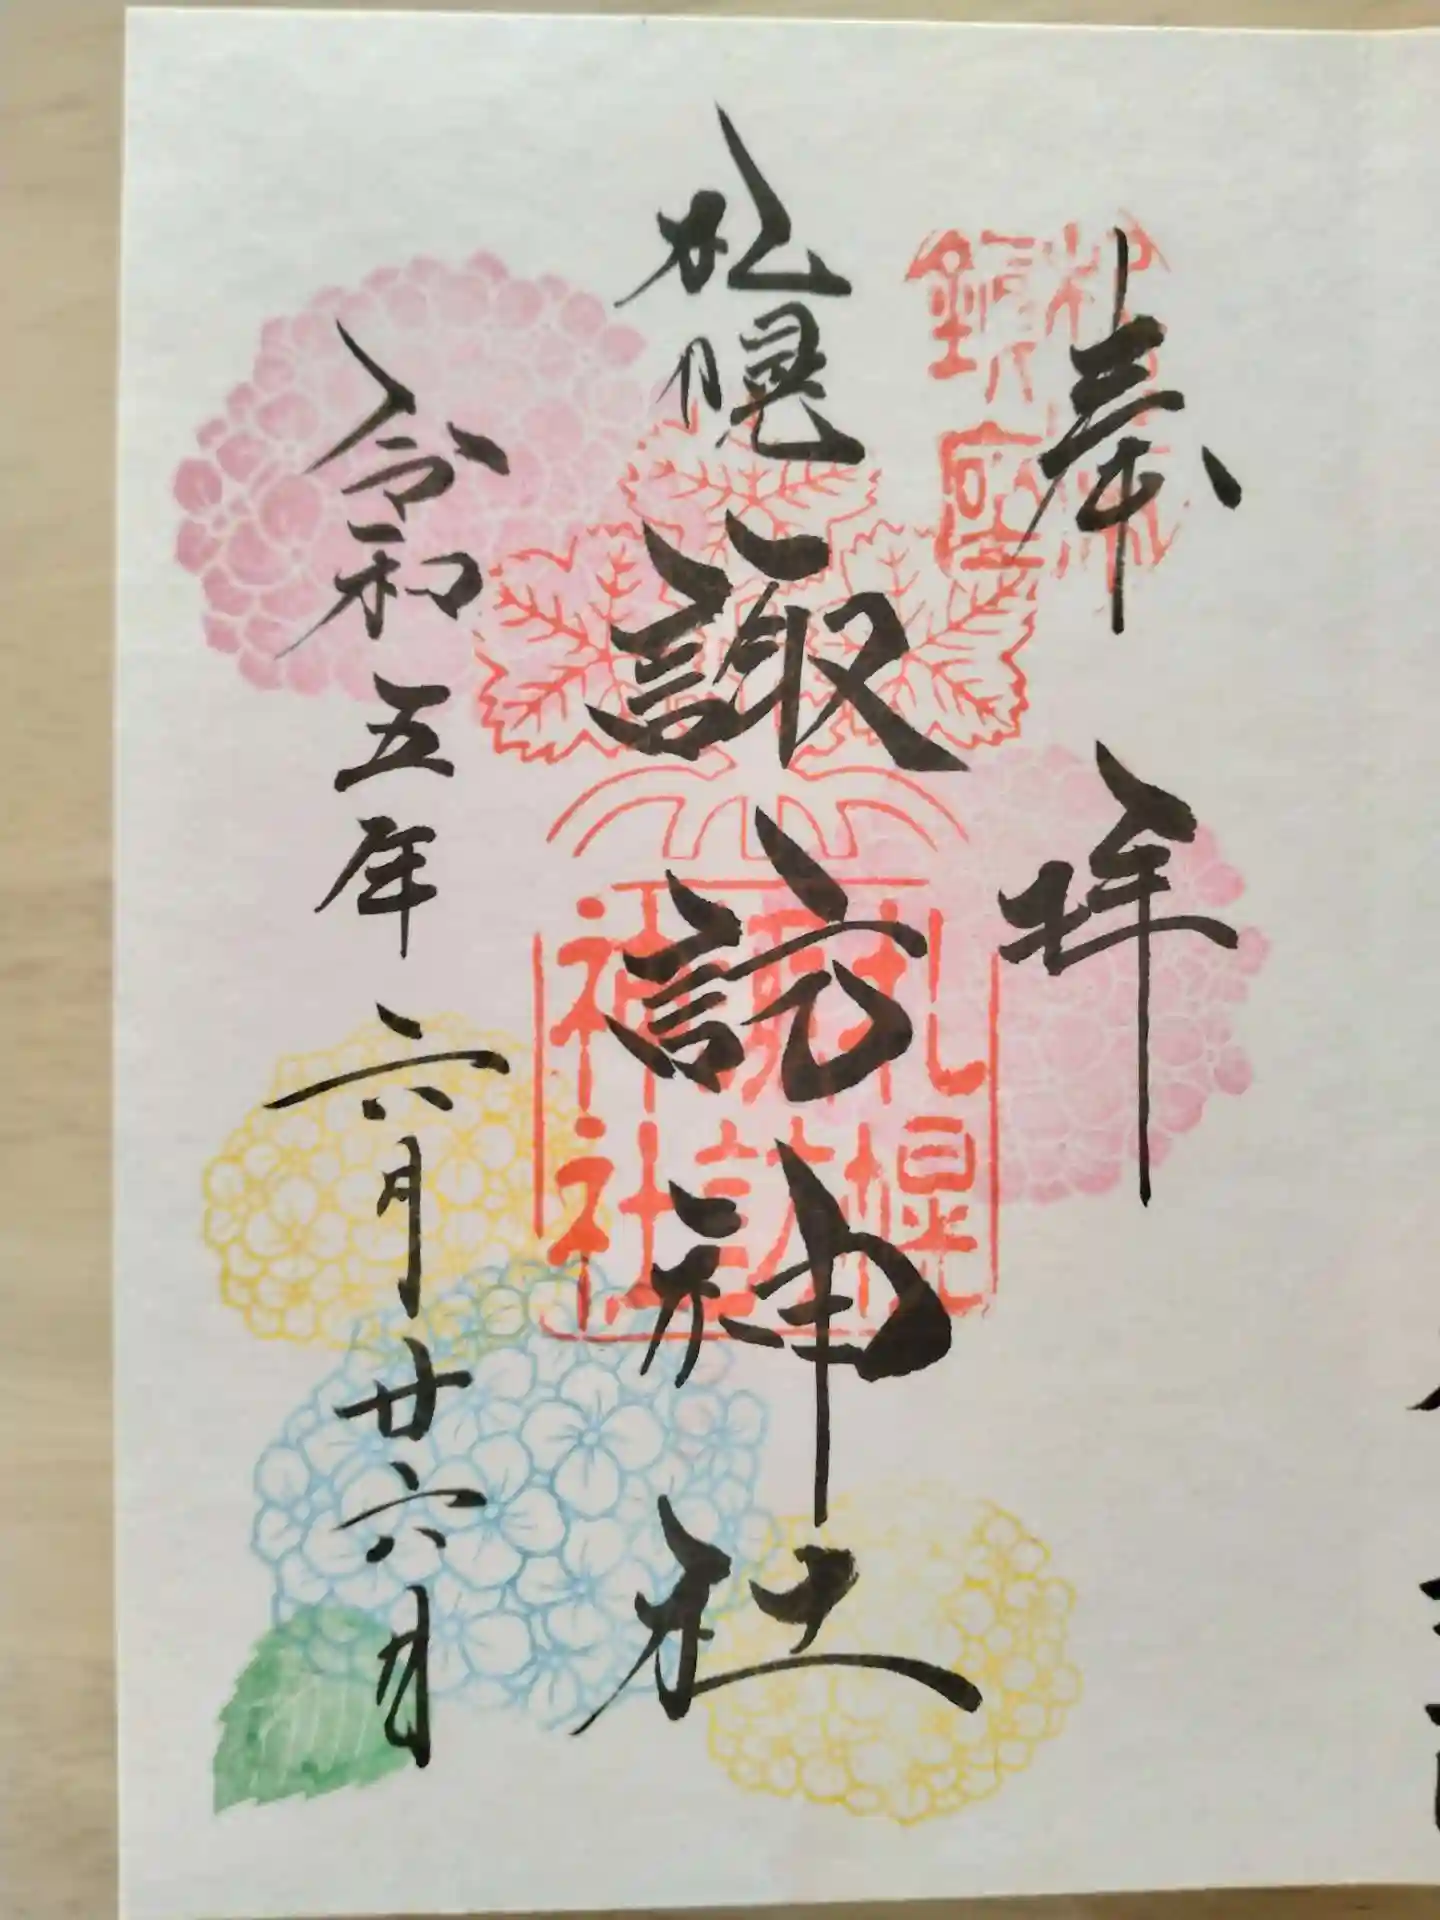 奉拝
札幌
諏訪神社
令和五年六月廿六日
札幌
諏訪
神社
鎮座